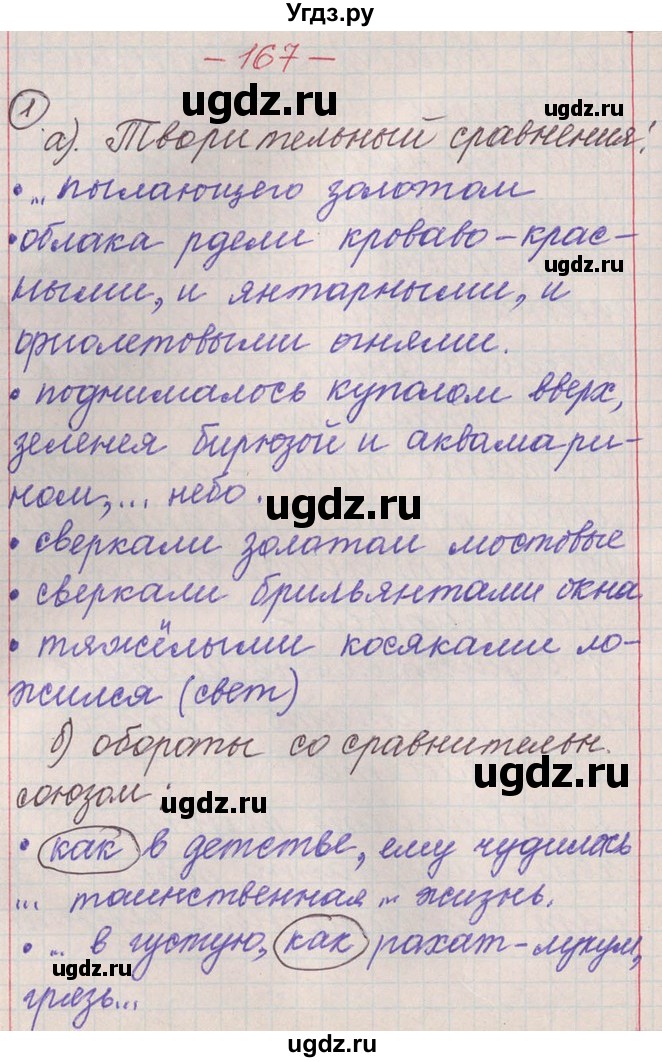 Угдз.ру
- 167 -
ugdz.ru
1
а). Творительный сравнения:
ugdz.ru
• ... пылающего золотом
• облака рдели кроваво-крас-
ugdz.ru
ными, и янтарными, и
фиолетовыми огнями.
• поднималось куполом вверх,
зеленея бирюзой и аквамари-
ном, ... небо.
ugdz.ru
• сверкали золотом мостовые
• сверкали брильянтами окна
• тяжёлыми косяками ло-
жился (свет)
б) обороты со сравнительн.
союзом:
ugdz.ru
ugdz.ru
• как в детстве, ему чудилось
... таинственная ... жизнь.
• ... в густую, как рахат-лукум,
ugdz.ru
грязь...
ugdz.ru